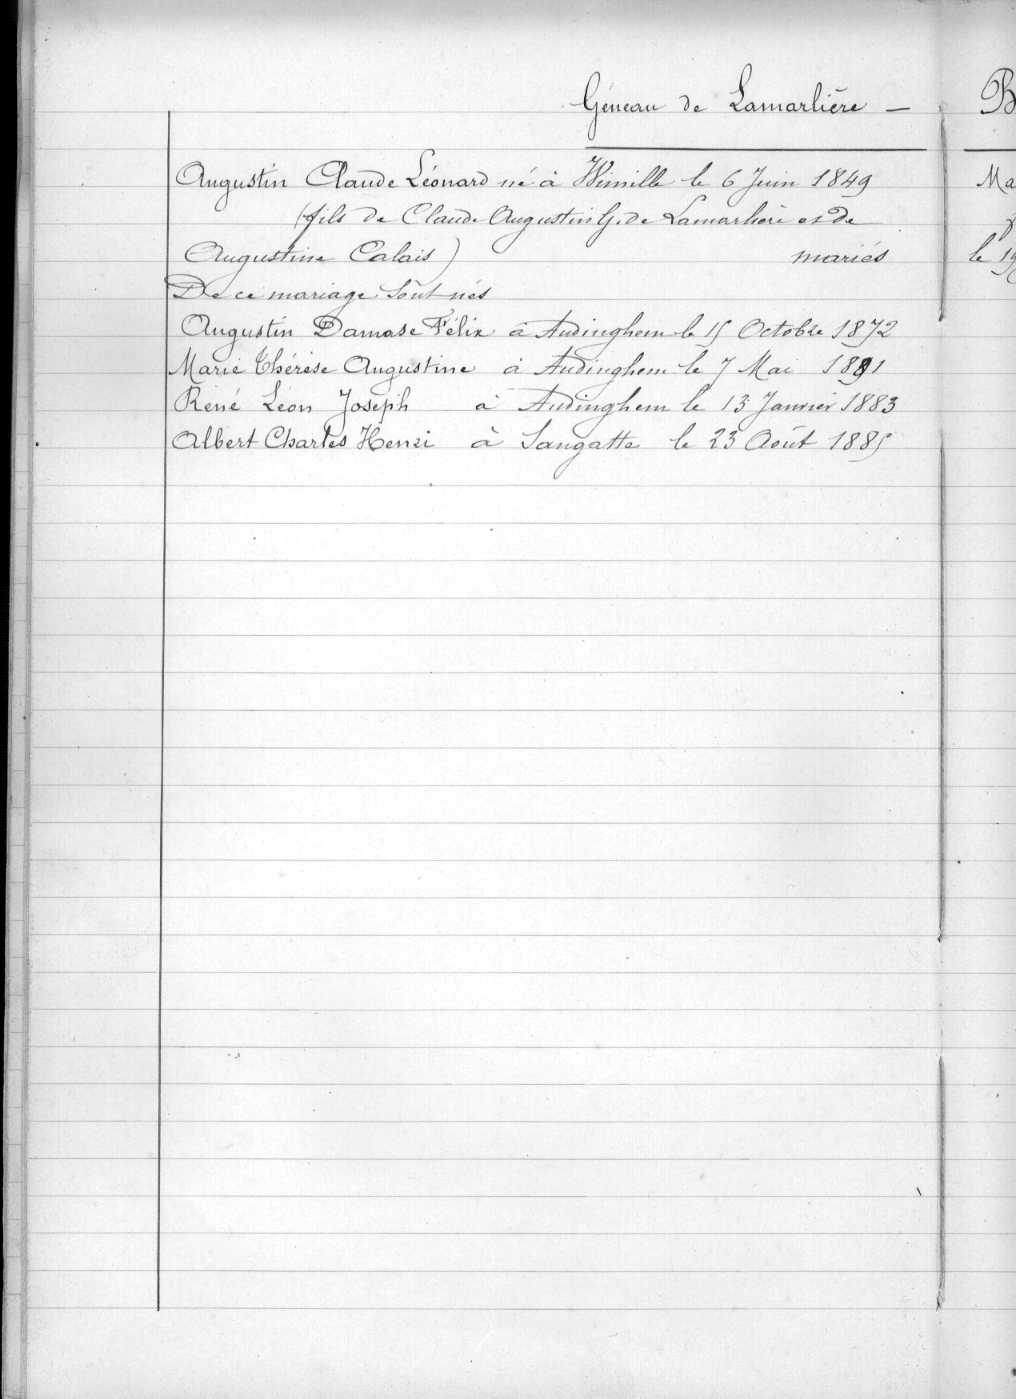 Géneau de Lamarlière —
B
Augustin Claude Léonard né à Wimille le 6 Juin 1849
Ma
(fils de Claude Augustin G. de Lamarlière et de
Augustine Calais) mariés
le 19
De ce mariage sont nés
Augustin Damase Félix à Audinghem le 15 Octobre 1872
Marie Thérèse Augustine à Audinghem le 7 Mai 1881
René Léon Joseph à Audinghem le 13 Janvier 1883
Albert Charles Henri à Sangatte le 23 Août 1885